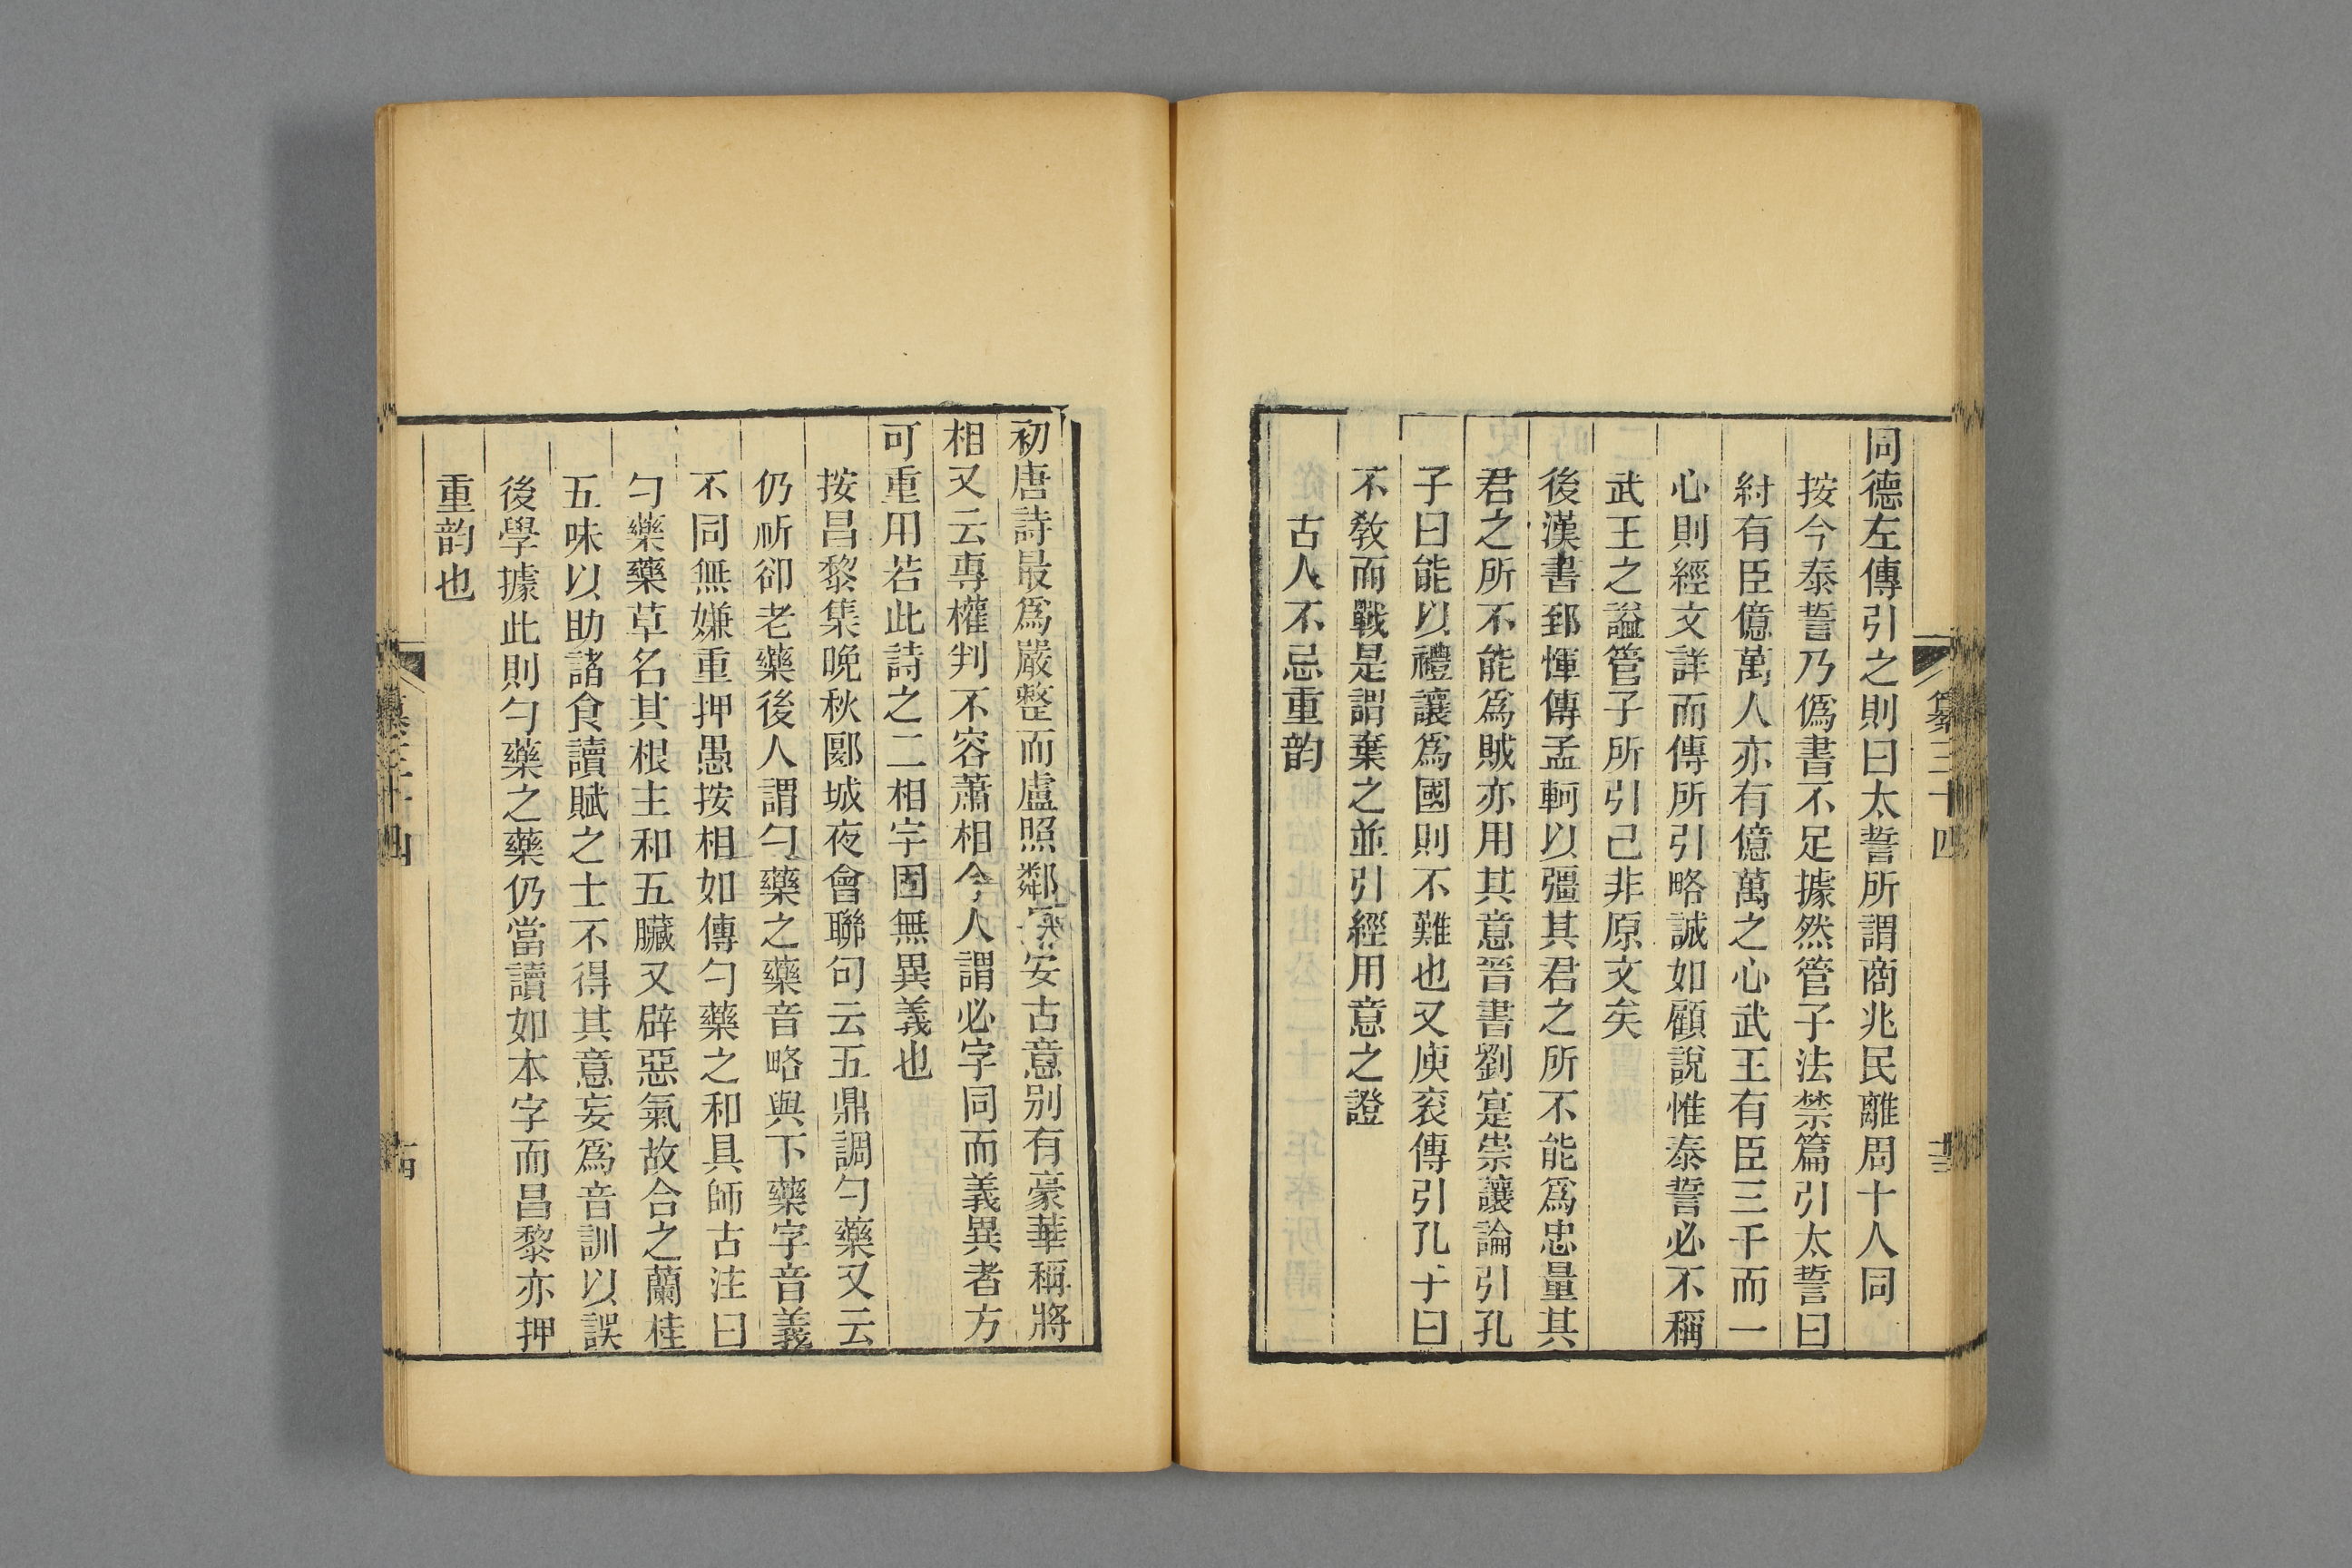 同德左傳引之則曰太誓所謂商兆民離周十人同
按今泰誓乃僞書不足據然管子法禁篇引太誓曰
紂有臣億萬人亦有億萬之心武王有臣三千而一
心則經文詳而傳所引略誠如顧說惟泰誓必不稱
武王之謚管子所引已非原文矣
後漢書郅惲傳孟軻以彊其君之所不能爲忠量其
君之所不能爲賊亦用其意晉書劉寔崇讓論引孔
子曰能以禮讓爲國則不難也又庾袞傳引孔子曰
不敎而戰是謂棄之並引經用意之證
古人不忌重韵
初唐詩最爲嚴整而盧照鄰長安古意別有豪華稱將
相又云專權判不容蕭相今人謂必字同而義異者方
可重用若此詩之二相字固無異義也
按昌黎集晚秋郾城夜會聯句云五鼎調勺藥又云
仍祈卻老藥後人謂勺藥之藥音略與下藥字音義
不同無嫌重押愚按相如傳勺藥之和具師古注曰
勺藥藥草名其根主和五臟又辟惡氣故合之蘭桂
五味以助諸食讀賦之士不得其意妄爲音訓以誤
後學據此則勺藥之藥仍當讀如本字而昌黎亦押
重韵也
纂三十四